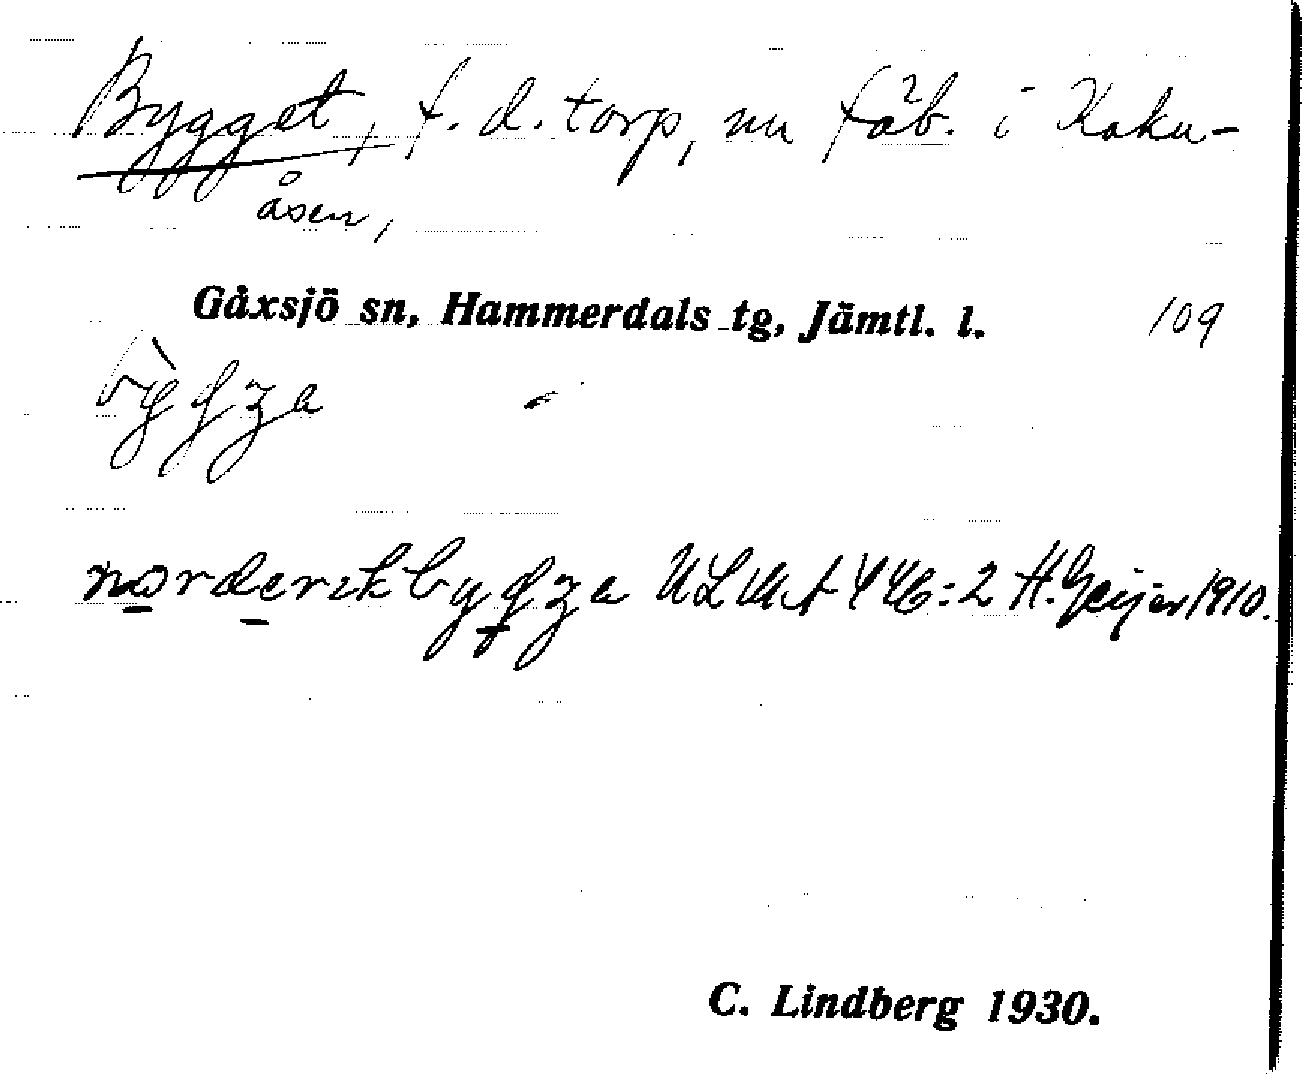 Bygget, f. d. torp, nu fäb. i Kaku-
åsen,
Gåxsjö sn, Hammerdals tg, Jämtl. l. 109
bỳgʒa
ULMA 446:2 H. Geijer 1910.
C. Lindberg 1930.